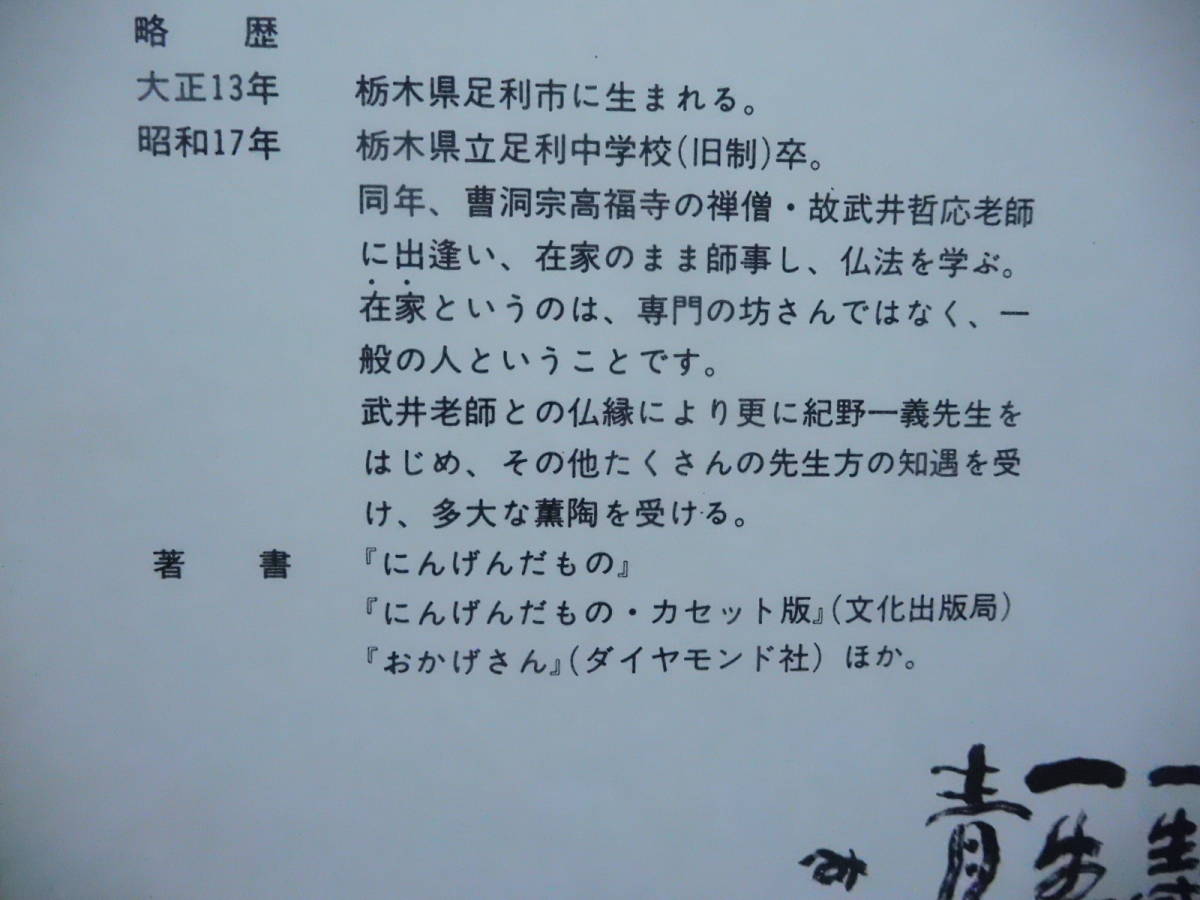 略　歴
大正13年　栃木県足利市に生まれる。
昭和17年　栃木県立足利中学校(旧制)卒。
同年、曹洞宗高福寺の禅僧・故武井哲応老師
に出逢い、在家のまま師事し、仏法を学ぶ。
在家というのは、専門の坊さんではなく、一
般の人ということです。
武井老師との仏縁により更に紀野一義先生を
はじめ、その他たくさんの先生方の知遇を受
け、多大な薫陶を受ける。
著　書　『にんげんだもの』
『にんげんだもの・カセット版』(文化出版局)
『おかげさん』(ダイヤモンド社) ほか。
一生
一生
青
み